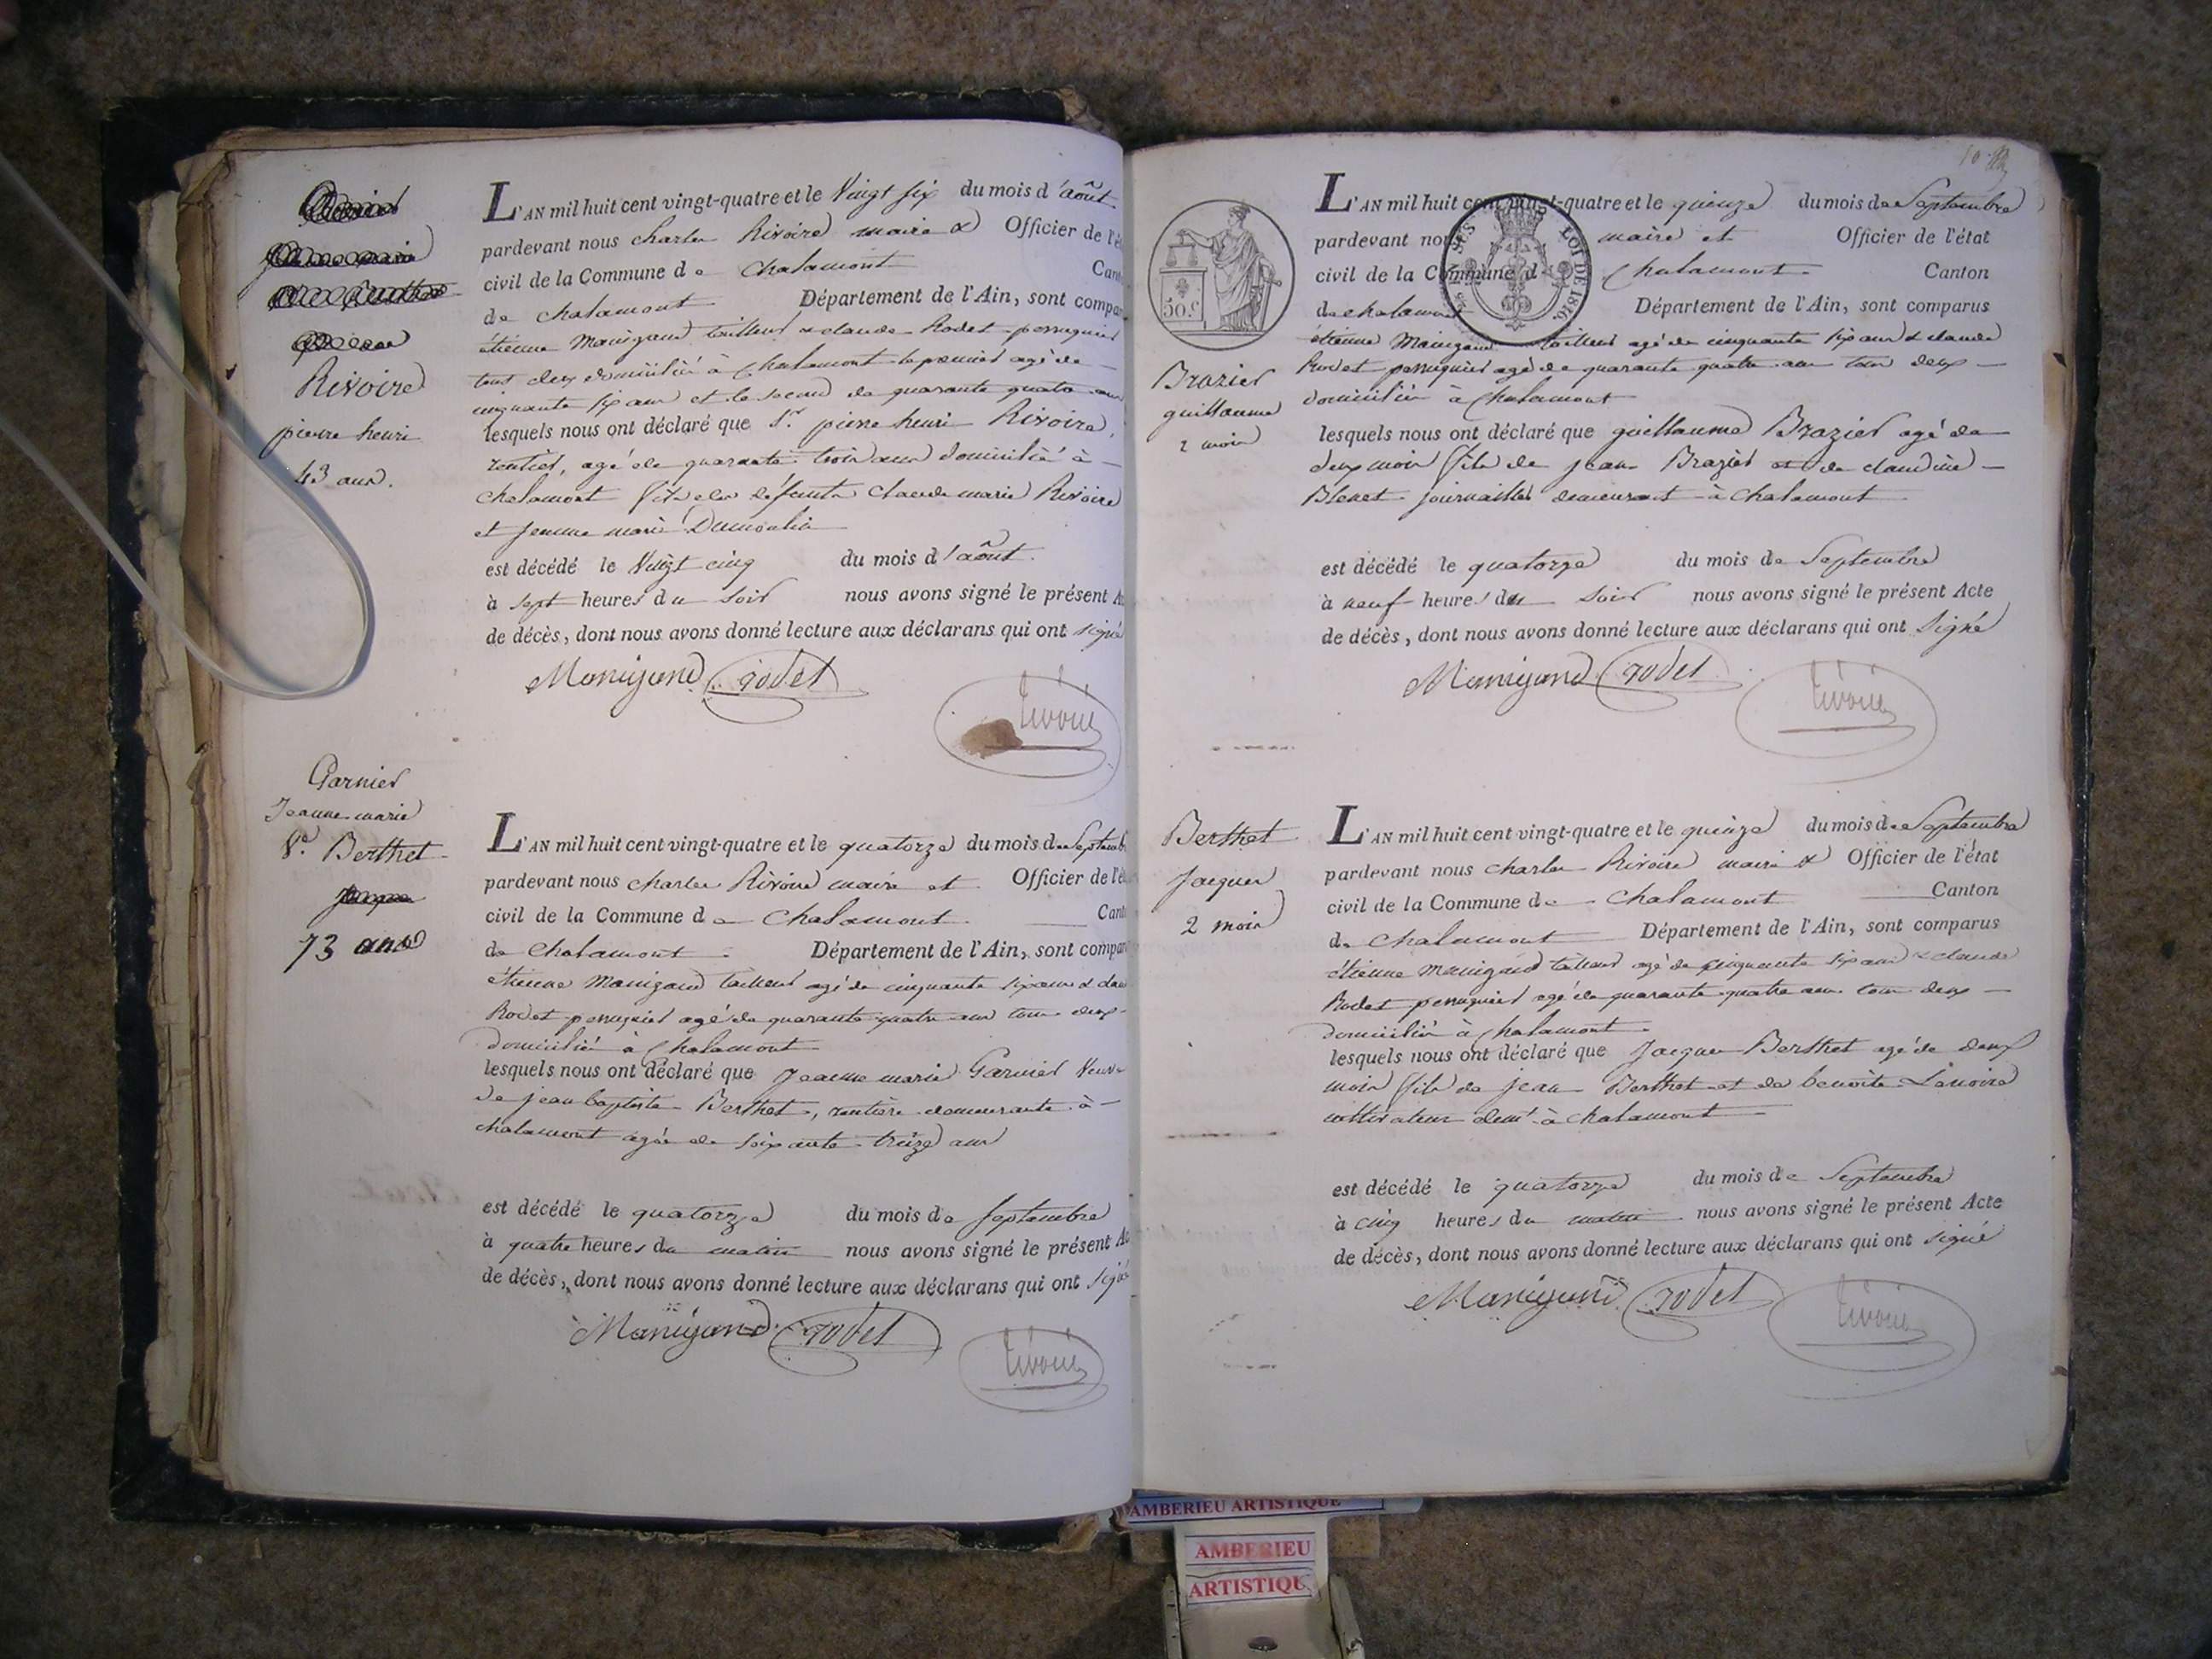 Rivoire
pierre henri
43 ans.
L'AN mil huit cent vingt-quatre et le Vingt six du mois d'août
pardevant nous charles Rivoire maire & Officier de l'é
civil de la Commune de Chalamont Cant
de chalamont Département de l'Ain, sont compar
étienne Manigand tailleur & claude Rodet perruquier
tous deux domicilié à Chalamont le premier agé de
cinquante six ans et le second de quarante quatre ans
lesquels nous ont déclaré que Sr. pierre henri Rivoire,
rentier, agé de quarante trois ans domicilié à
chalamont fils des défunts Claude marie Rivoire
et jeanne marie Dumoulin
est décédé le Vingt cinq du mois d'août.
à sept heures du soir nous avons signé le présent A
de décès, dont nous avons donné lecture aux déclarans qui ont signé
Manigand rodet
rivoire
Garnier
Jeanne marie
Ve. Berthet
73 ans
L'AN mil huit cent vingt-quatre et le quatorze du mois de Septemb
pardevant nous charles Rivoire maire et Officier de l'é
civil de la Commune de Chalamont Cant
de Chalamont Département de l'Ain, sont compar
étienne Manigand tailleur agé de cinquante six ans & clau
Rodet perruquier agé de quarante quatre ans tous deux
domicilié à Chalamont
lesquels nous ont déclaré que Jeanne marie Garnier Veuve
de jean baptiste Berthet, rentière demeurante à
chalamont agée de soixante treize ans
est décédé le quatorze du mois de Septembre
à quatre heures du matin nous avons signé le présent Ac
de décès, dont nous avons donné lecture aux déclarans qui ont signé
Manigand rodet
rivoire
10
50.c
LOI DE 1816.
Brazier
guillaume
2 mois
L'AN mil huit cent vingt-quatre et le quinze du mois de Septembre
pardevant nous maire et Officier de l'état
civil de la Commune d Chalamont Canton
de chalamont Département de l'Ain, sont comparus
étienne Manigand tailleur agé de cinquante six ans & claude
Rodet perruquier agé de quarante quatre ans tous deux
domicilié à Chalamont
lesquels nous ont déclaré que guillaume Brazier agé de
deux mois fils de jean Brazier et de claudine
Blenet journaillier demeurant à chalamont
est décédé le quatorze du mois de Septembre
à neuf heures du soir nous avons signé le présent Acte
de décès, dont nous avons donné lecture aux déclarans qui ont Signé
Manigand rodet
rivoire
Berthet
Jacques
2 mois
L'AN mil huit cent vingt-quatre et le quinze du mois de Septembre
pardevant nous charles Rivoire maire & Officier de l'état
civil de la Commune de Chalamont Canton
de chalamont Département de l'Ain, sont comparus
étienne Manigand tailleur agé de cinquante six ans & claude
Rodet perruquier agé de quarante quatre ans tous deux
domicilié à Chalamont
lesquels nous ont déclaré que Jacques Berthet agé de deux
mois fils de jean Berthet et de benoite Lanoire
cultivateur demt. à chalamont
est décédé le quatorze du mois de Septembre
à cinq heures du matin nous avons signé le présent Acte
de décès, dont nous avons donné lecture aux déclarans qui ont signé
Manigand rodet
rivoire
AMBERIEU ARTISTIQUE
AMBERIEU
ARTISTIQU